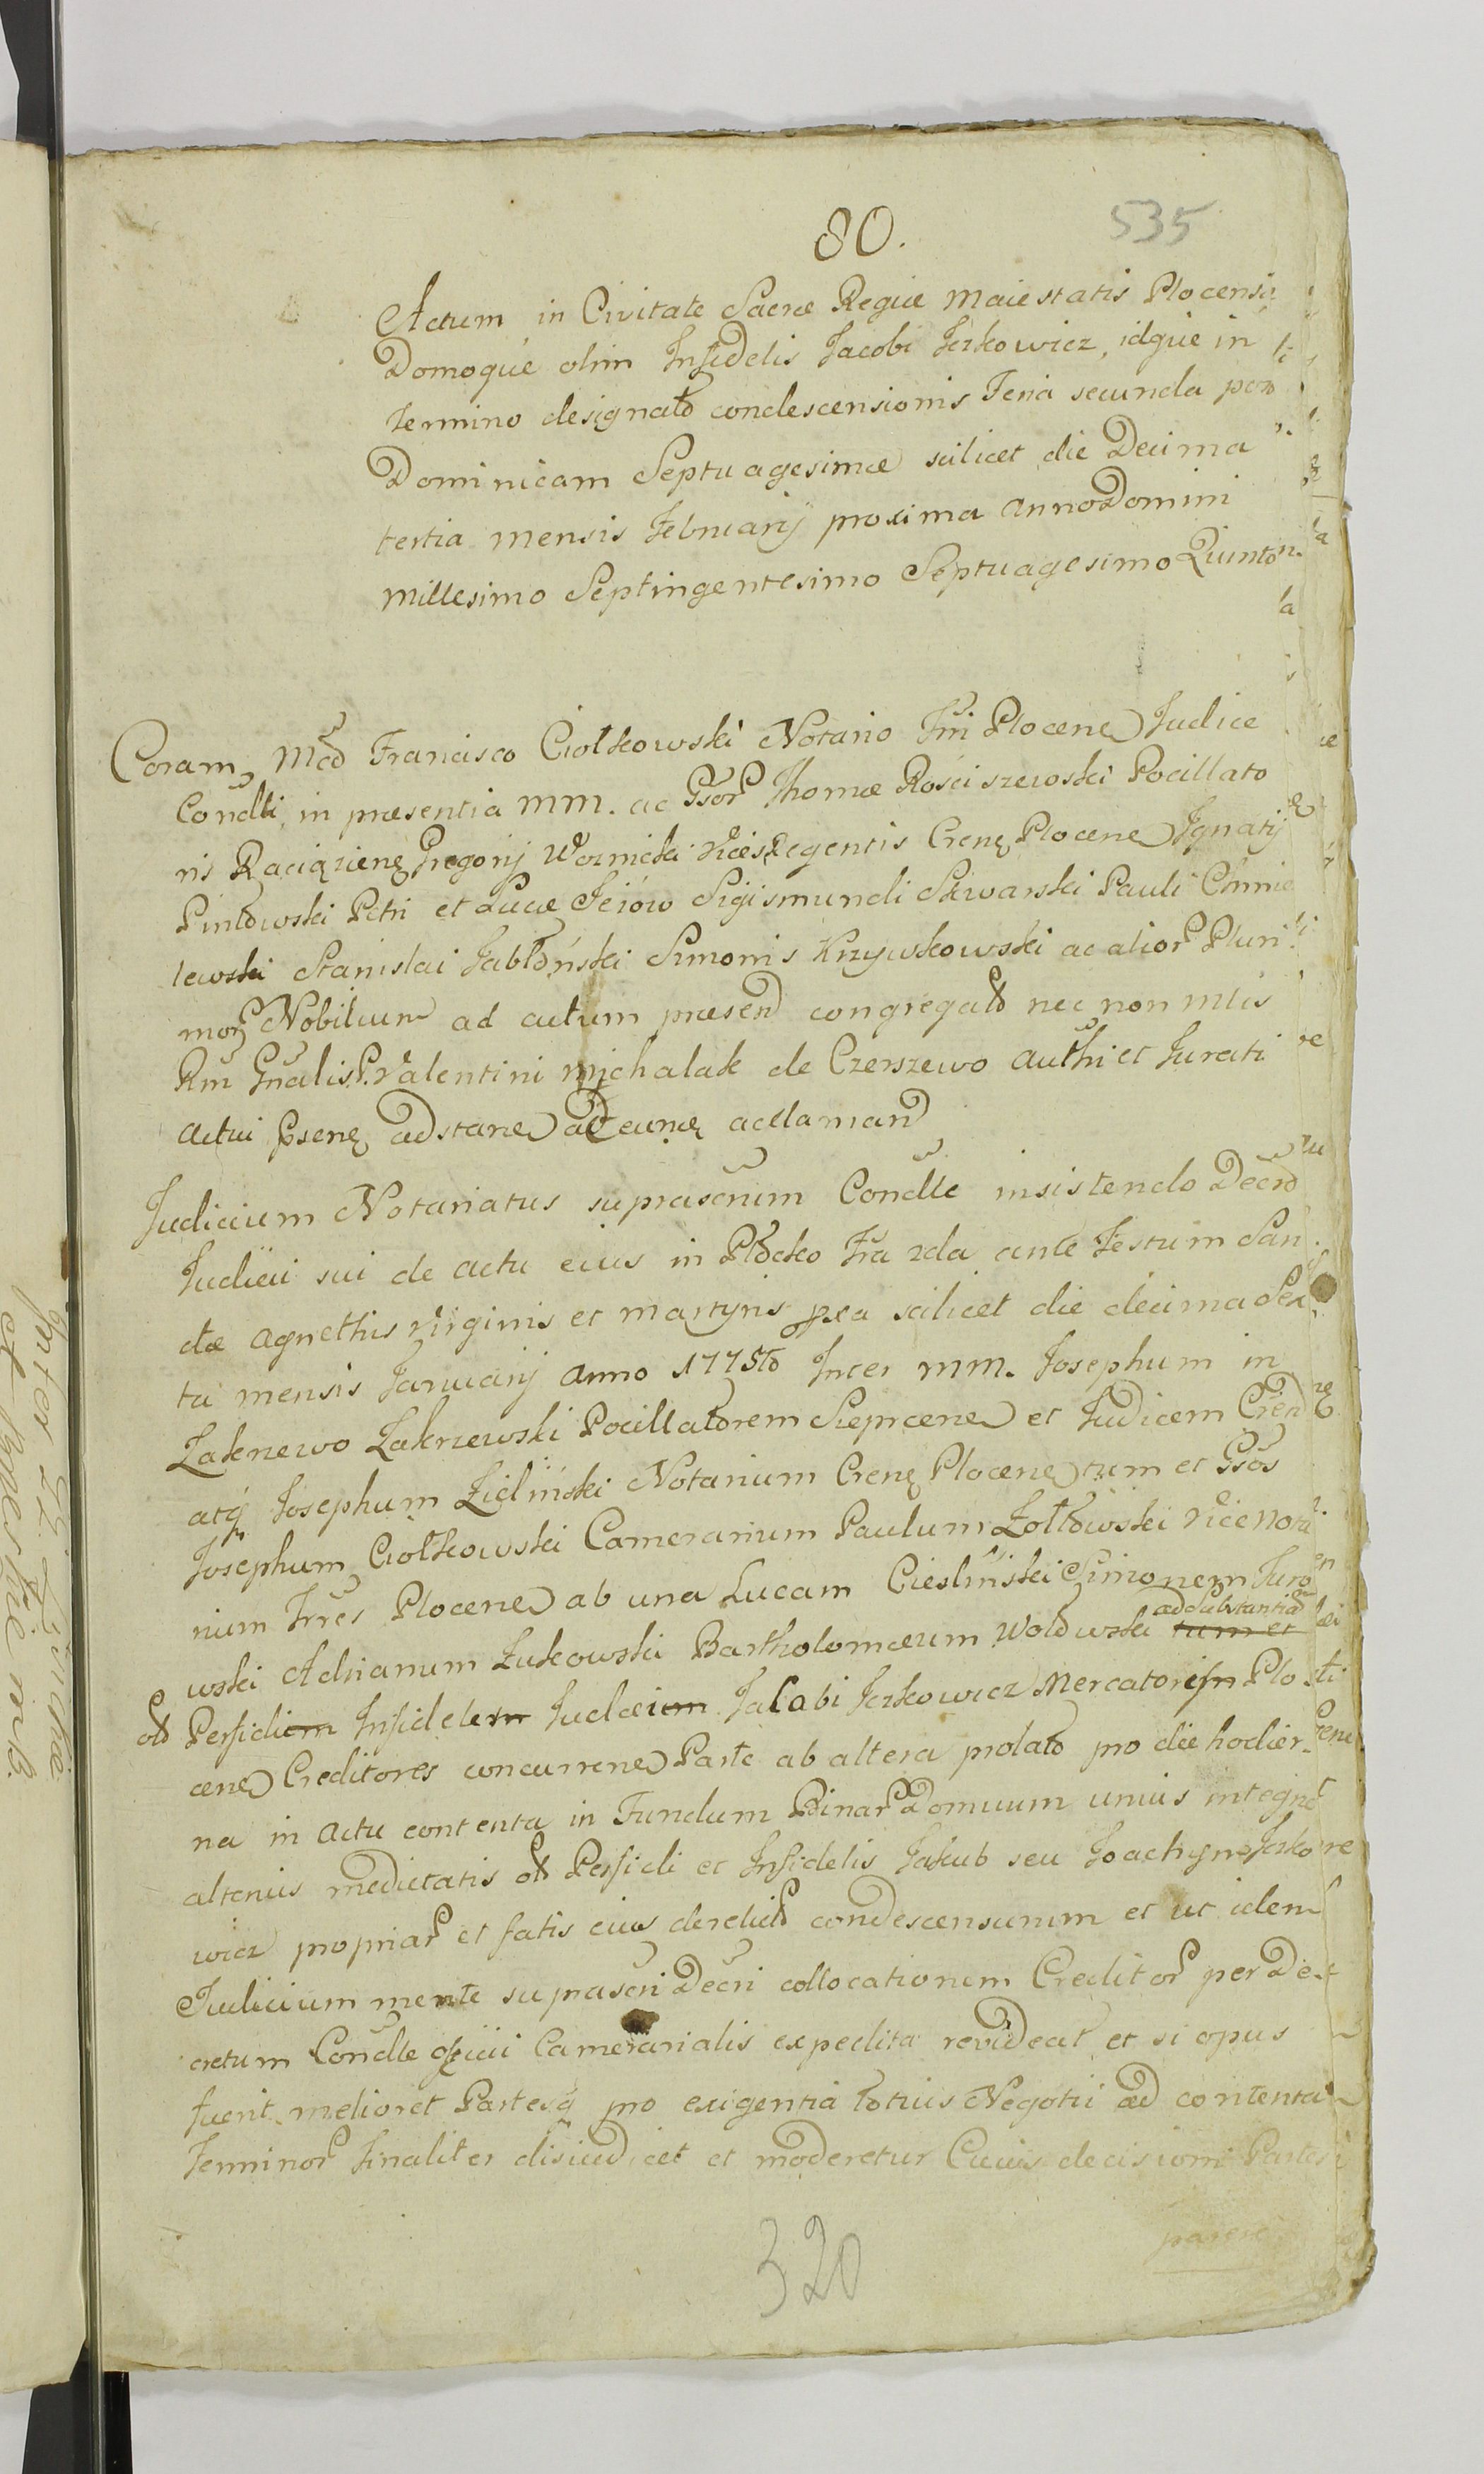 80.
535
Actum in Civitate Sacræ Regiæ Maiestatis Plocensi
Domoque olim Infidelis Jacobi Jezkowicz, idque in
termino designato condescensionis Feria secunda post
Dominicam Septuagesimæ scilicet die Decima
tertia mensis Februarij proxima Anno Domini
Millesimo Septingentesimo Septuagesimo Quinto
Coram Mco Francisco Ciołkowski Notario Tri Plocen Judice
Condli, in præsentia MM. ac Gsor Thomæ Rościszewski Pocillato
ris Raciążien Gregorij Woznicki Vices Regentis Cren Plocen Ignatij
Pintowski Petri et Lucæ Jeiow Sigismundi Skwarski Pauli Chmie
lewski Stanislai Jabłoński Simonis Krzywkowski ac alior Pluri
mor Nobilium ad actum præsen congregato nec non Mtis
Rm Gnalis P. Valentini Michalak de Czerszewo Authi et Jurati
Actui psen adstan acclaman
Judicium Notariatus suprascrium Condle insistendo Decro
Judicii sui de Actu eius in Płocko Fra 2da ante Festum San
ctæ Agnethis Virginis et Martyris pxa scilicet die decima Sex
ta mensis Januarij Anno 1775to Inter MM. Josephum in
Zakrzewo Zakrzewski Pocillatorem Sieprcen et Judicem Cren
atq Josephum Zieliński Notarium Cren Plocen tum et Gsos
Josephum Ciołkowski Camerarium Paulum Zółtowski Vice Nota
rium Trres Plocen ab una Lucam Ciesliński Simonem Turo
wski Adrianum Łukowski Bartholomæum Wołowski tum et
ad Substantia
ol Perfidi Infidelem Judæi Jacobi Jezkowicz Mercatoris Plo
cen Creditores concurren Parte ab altera prolato pro die hodier-
na in Actu contenta in Fundum Binar Domuum unius integræ
alterius medietatis ol Perfidi et Infidelis Jakub seu Joachym Jezko
wicz propriar et fatis eius derelict condescensurum et ut idem
Judicium mente suprascri Decri collocationem Creditor per De-
cretum Condle officii Camerarialis expedita revideat et si opus
fuerit melioret Partesq pro exigentia totius Negotii ad contenta
Terminor finaliter disiudicet et moderetur Cuius decisioni Partes
parere
320